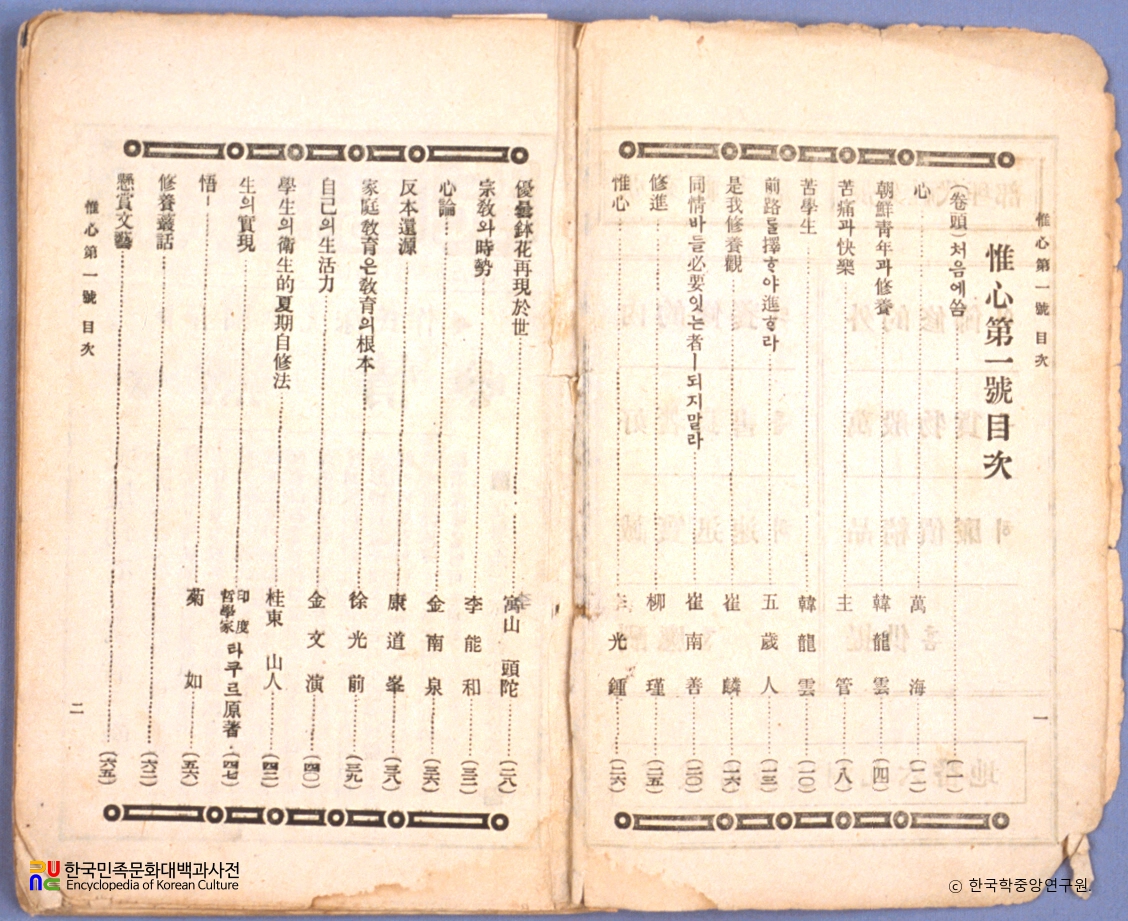 惟心第一號 目次
惟心第一號目次
(卷頭)처음에씀 (一)
心 萬海 (二)
朝鮮靑年과修養 韓龍雲 (四)
苦痛과快樂 主管 (八)
苦學生 韓龍雲 (一〇)
前路를擇ᄒᆞ야進ᄒᆞ라 五歲人 (一三)
是我修養觀 崔麟 (一六)
同情바들必要잇는者ㅣ되지말라 崔南善 (二〇)
修進 柳瑾 (二五)
惟心 光鍾 (二六)
一
優曇鉢花再現於世 寓山頭陀 (二八)
宗敎와時勢 李能和 (三二)
心論 金南泉 (三六)
反本還源 康道峯 (三八)
家庭敎育은敎育의根本 徐光前 (三九)
自己의生活力 金文演 (四〇)
學生의衛生的夏期自修法 桂東山人 (四二)
生의實現 印度哲學家 타쿠르原著 (四七)
悟 菊如 (五六)
修養叢話 (六二)
懸賞文藝 (六五)
惟心第一號 目次
二
한국민족문화대백과사전
Encyclopedia of Korean Culture
© 한국학중앙연구원